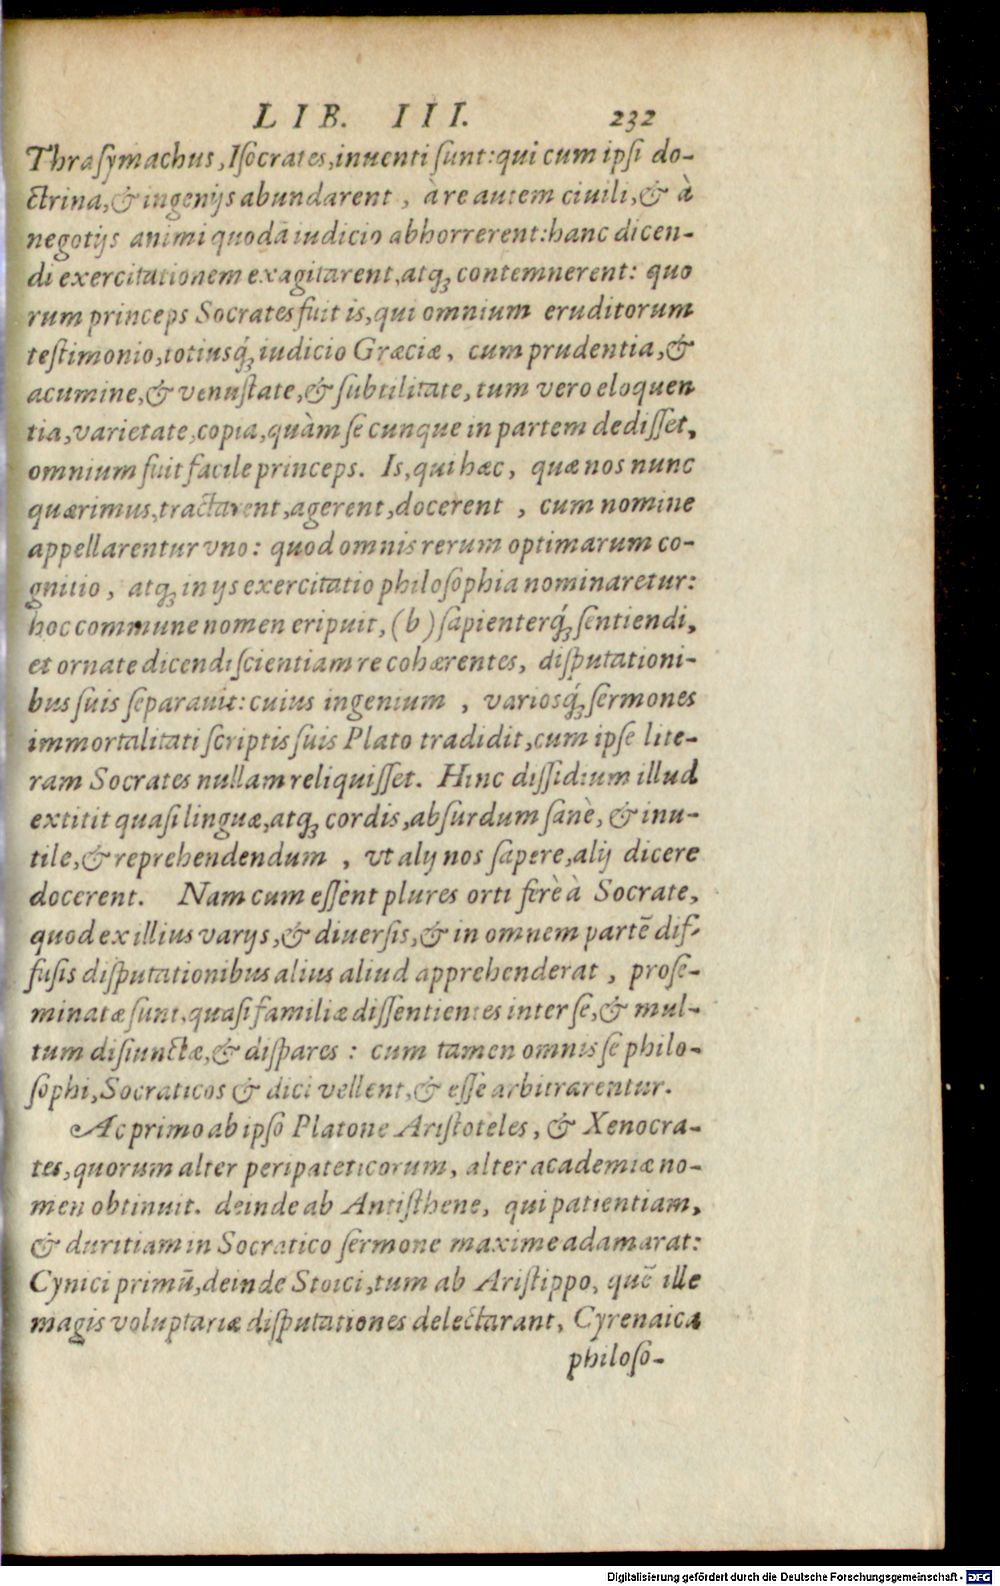 LIB. III. 232
Thraſymachus, Iſocrates, inuenti ſunt: qui cum ipſi do-
ctrina, & ingenijs abundarent, à re autem ciuili, & à
negotijs animi quodā iudicio abhorrerent: hanc dicen-
di exercitationem exagitarent, atqꝫ contemnerent: quo
rum princeps Socrates fuit is, qui omnium eruditorum
teſtimonio, totiusq́ꝫ iudicio Græciæ, cum prudentia, &
acumine, & venuſtate, & ſubtilitate, tum vero eloquen
tia, varietate, copia, quàm ſe cunque in partem dediſſet,
omnium fuit facile princeps. Is, qui hæc, quæ nos nunc
quærimus, tractarent, agerent, docerent, cum nomine
appellarentur vno: quod omnis rerum optimarum co-
gnitio, atqꝫ in ijs exercitatio philoſophia nominaretur:
hoc commune nomen eripuit, (b) ſapienterq́ꝫ ſentiendi,
et ornate dicendi ſcientiam re cohærentes, diſputationi-
bus ſuis ſeparauit: cuius ingenium, variosq́ꝫ ſermones
immortalitati ſcriptis ſuis Plato tradidit, cum ipſe lite-
ram Socrates nullam reliquiſſet. Hinc diſſidium illud
extitit quaſi linguæ, atqꝫ cordis, abſurdum ſanè, & inu-
tile, & reprehendendum, vt alij nos ſapere, alij dicere
docerent. Nam cum eſſent plures orti ferè à Socrate,
quod ex illius varijs, & diuerſis, & in omnem partē dif-
fuſis diſputationibus alius aliud apprehenderat, proſe-
minatæ ſunt, quaſi familiæ diſſentientes inter ſe, & mul-
tum diſiunctæ, & diſpares: cum tamen omnis ſe philo-
ſophi, Socraticos & dici vellent, & eſſe arbitrarentur.
Ac primo ab ipſo Platone Ariſtoteles, & Xenocra-
tes, quorum alter peripateticorum, alter academiæ no-
men obtinuit. deinde ab Antiſthene, qui patientiam,
& duritiam in Socratico ſermone maxime adamarat:
Cynici primū, deinde Stoici, tum ab Ariſtippo, quē ille
magis voluptariæ diſputationes delectarant, Cyrenaica
philoſo-
Digitalisierung gefördert durch die Deutsche Forschungsgemeinschaft - DFG